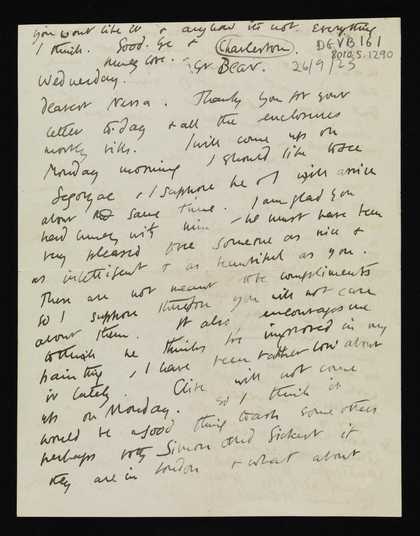 you wont like it & anyhow its not everything
I think. Good-bye &
much love. Charleston. DGVB161
Yr Bear. 26/9/25 8010.5.1290
Wednesday.
Dearest Nessa. Thank you for your
letter to-day & all the enclosures
mostly bills. I will come up on
Monday morning I should like to see
Segonzac & I suppose he & I will arrive
about the same time. I am glad you
had lunch with him & he must have been
very pleased to see someone as nice &
as intelligent & as beautiful as you.
These are not meant to be compliments
so I suppose therefore you will not care
about them. It also encourages me
to think he thinks I've improved in my
painting, I have been rather low about
it lately. Clive will not come
up on Monday. so I think it
would be a good thing to ask some others
perhaps both Simon and Sickert if
they are in London & what about